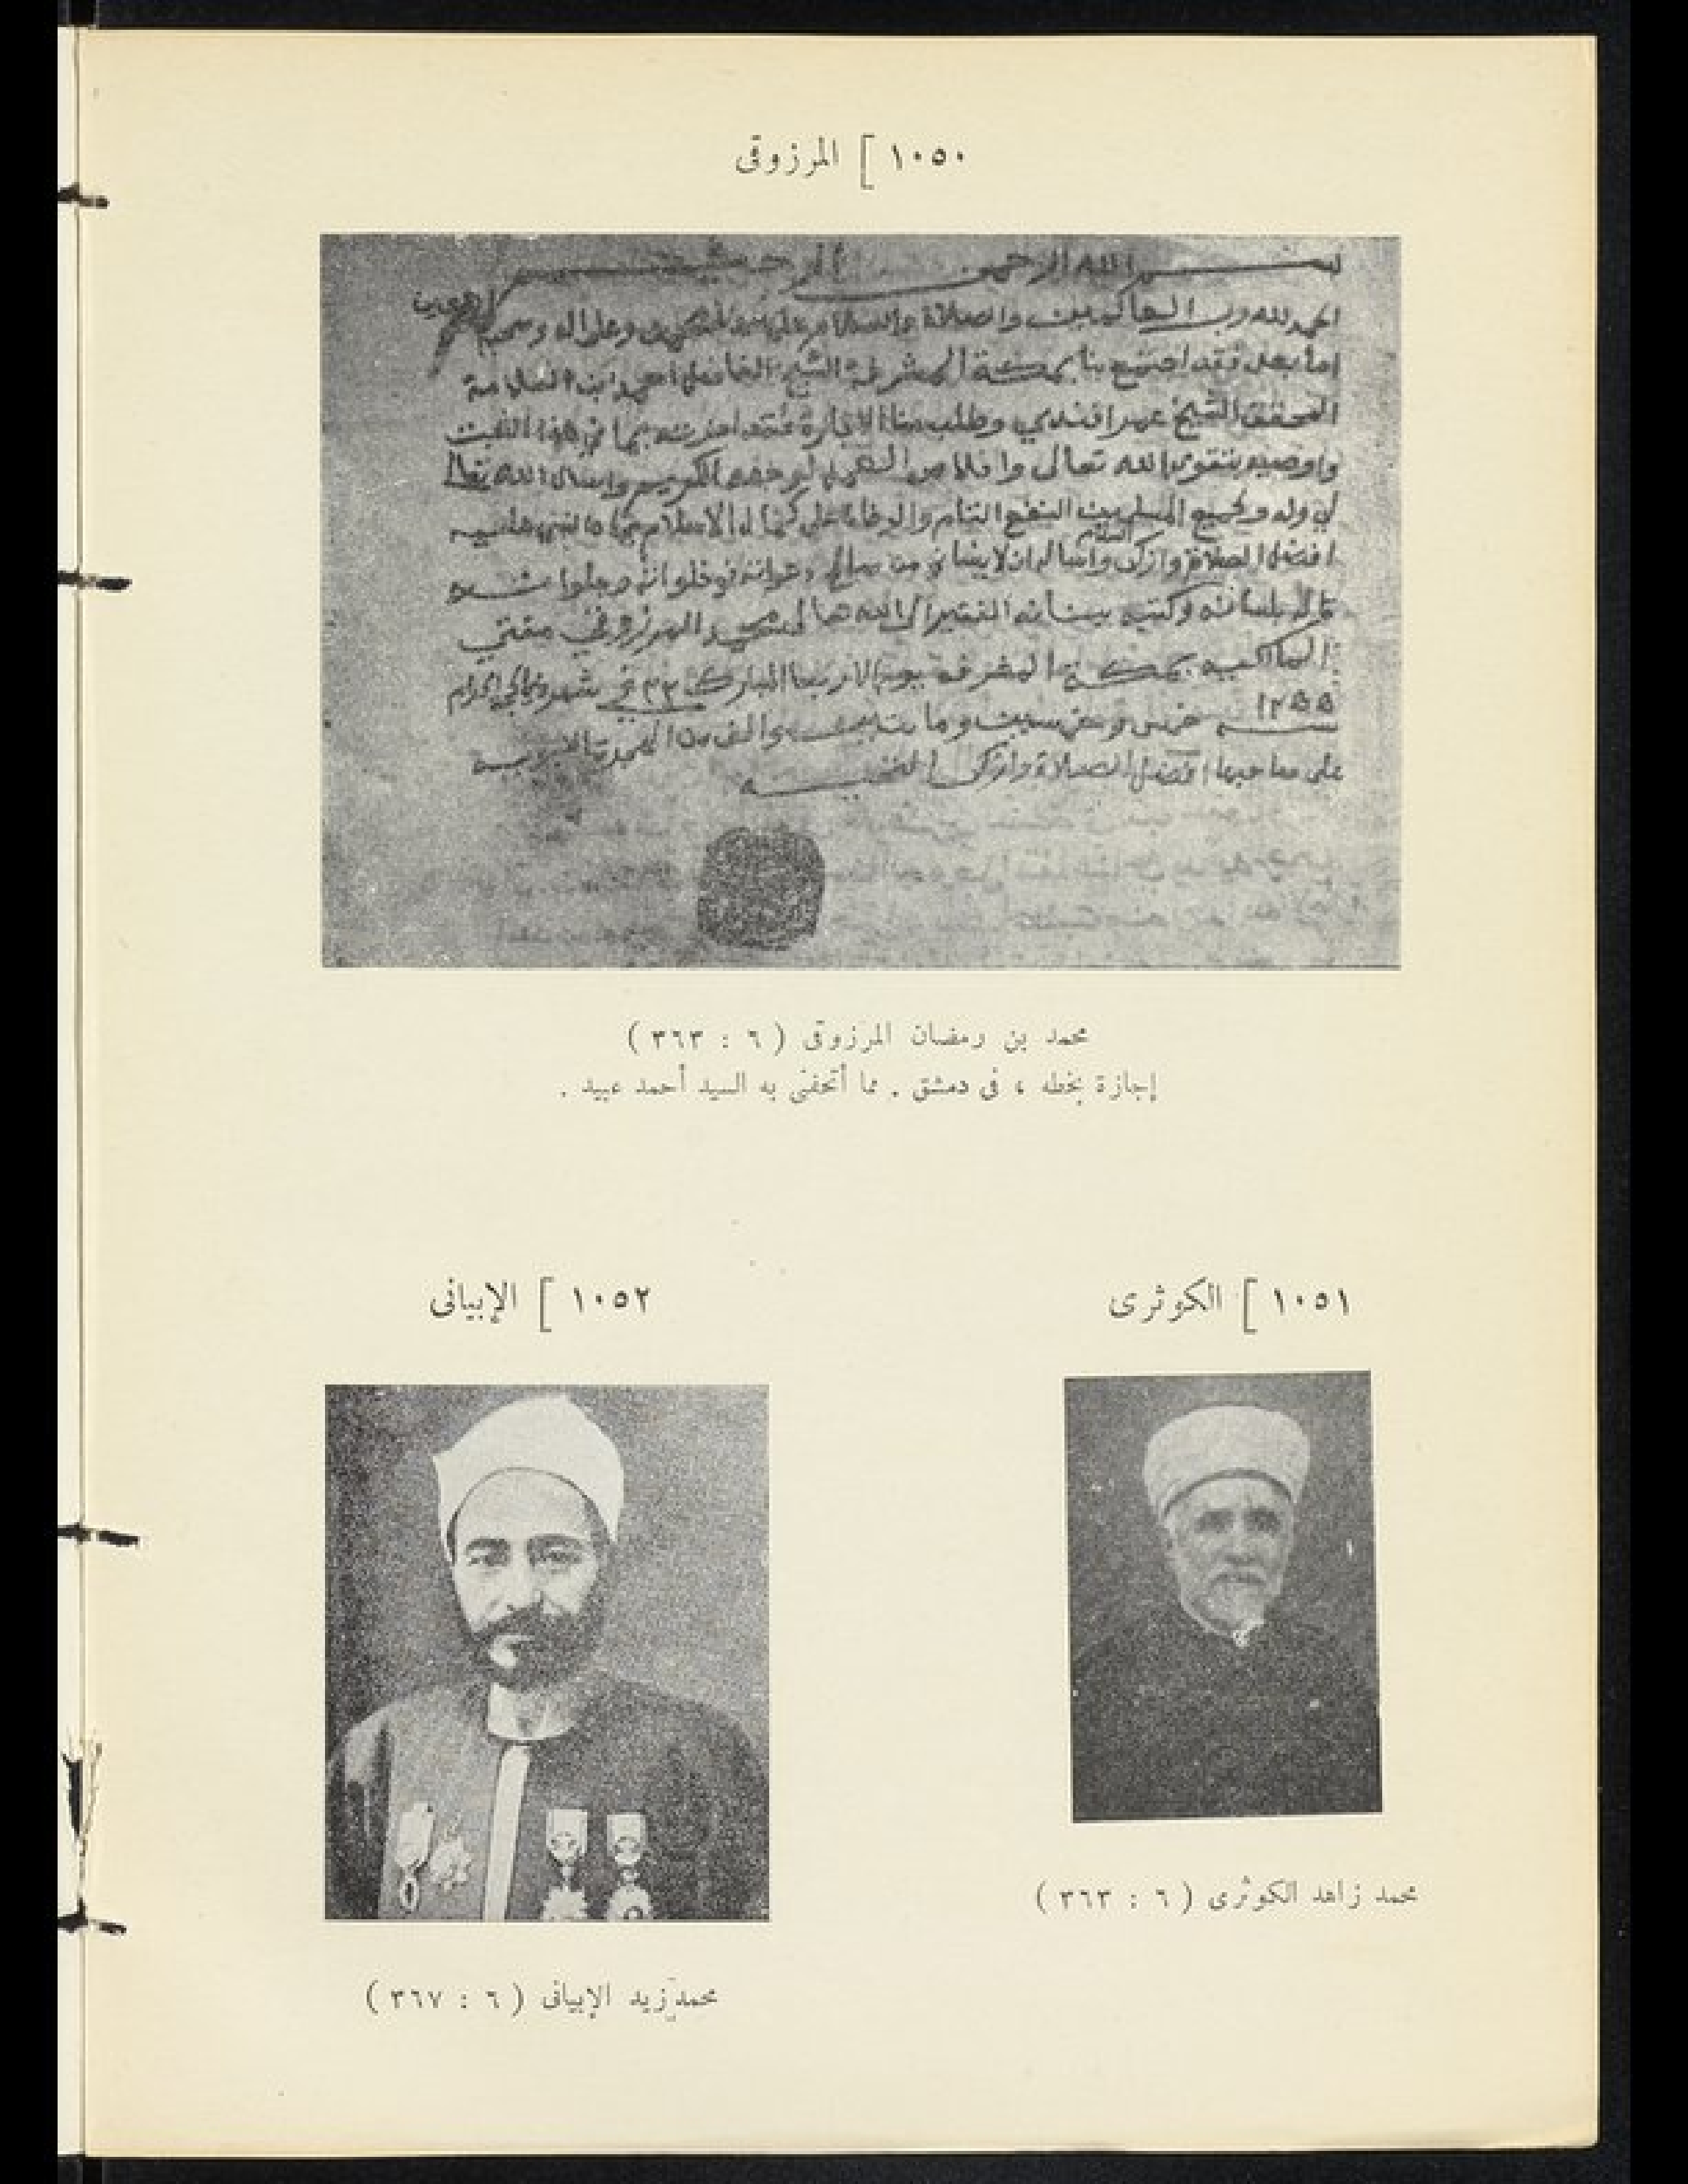 ١٠٥٠ ] المرزوقى
بسم الله الرحمن الرحيم
الحمد لله رب العالمين والصلاة والسلام على سيدنا محمد وعلى اله وصحبه اجمعين
اما بعد فقد اجتمع بنا بمكة المشرفة الشيخ الفاضل احمد ابن العلامة
المحقق الشيخ عمر افندي وطلب منا الاجازة فقد اجزته بما في هذا الثبت
واوصيه بتقوى الله تعالى واخلاص العمل لوجهه الكريم واسال الله تعالى
لي وله ولجميع المسلمين النفع التام والوفاة على كمال الاسلام بجاه النبي عليه
افضل الصلاة وازكى السلام واساله ان لا ينساني من صالح دعواته في خلواته وجلواته
قاله بلسانه وكتبه ببنانه الفقير الى الله محمد المرزوقي مفتي
المالكية بمكة المشرفة يوم الاربعا المبارك ٢٣ في شهر الحرام
١٢٥٥ سنة خمس وخمسين ومايتين والف من الهجرة النبوية
على صاحبها افضل الصلاة وازكى التحية
محمد بن رمضان المرزوقى ( ٦ : ٣٦٣ )
إجازة بخطه ، فى دمشق . مما أتحفنى به السيد أحمد عبيد .
١٠٥١ ] الكوثرى
محمد زاهد الكوثرى ( ٦ : ٣٦٣ )
١٠٥٢ ] الإبيانى
محمد زيد الإبيانى ( ٦ : ٣٦٧ )